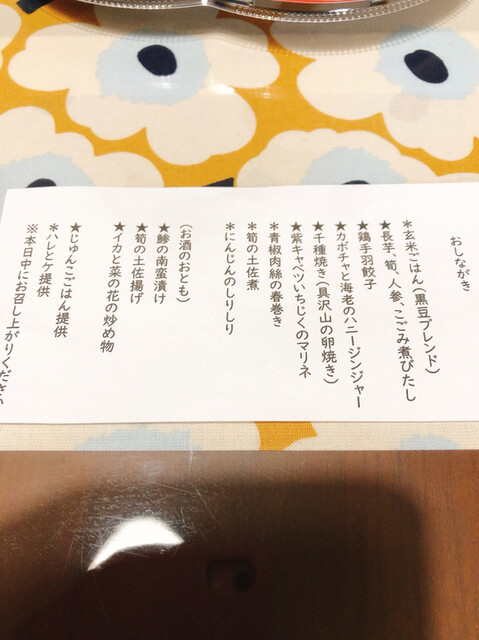 おしながき
*玄米ごはん(黒豆ブレンド)
★長芋、筍、人参、こごみ煮びたし
★鶏手羽餃子
★カボチャと海老のハニージンジャー
★千種焼き(具沢山の卵焼き)
★紫キャベツいちじくのマリネ
*青椒肉絲の春巻き
*筍の土佐煮
*にんじんのしりしり
(お酒のおとも)
★鯵の南蛮漬け
★筍の土佐揚げ
★イカと菜の花の炒め物
★じゅんこごはん提供
*ハレとケ提供
※本日中にお召し上がりください